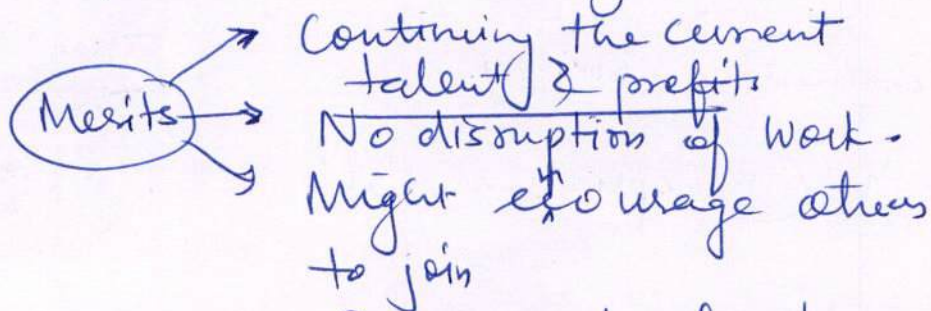 Continuing the current
talent & profits
Merits
No disruption of work.
Might encourage others
to join